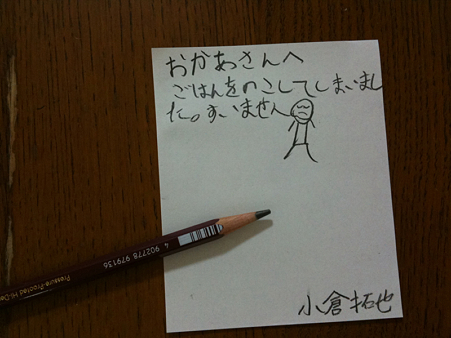 おかあさんへ
ごはんをのこしてしまいまし
た。すいません
小倉拓也
4 902778 979136
Pressure-Proofed Hi-De